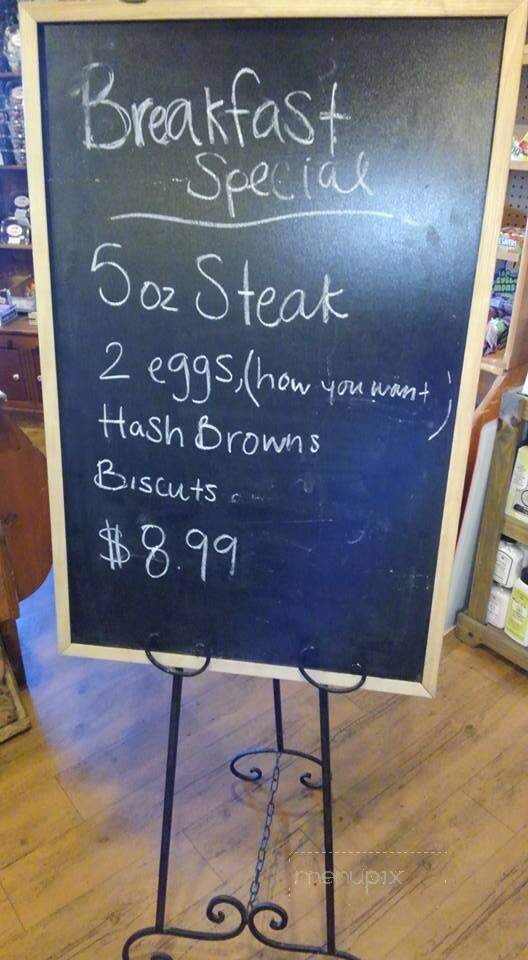 Breakfast
Special
5 oz Steak
2 eggs, (how you want)
Hash Browns
Biscuts
$8.99
menupix